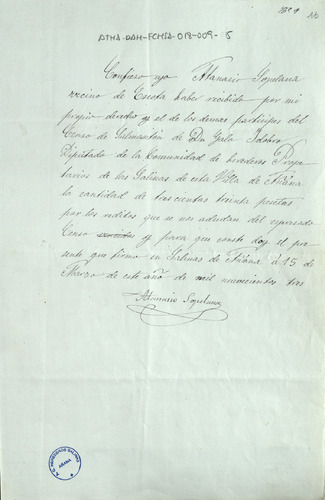 ATHA-DAH-FCHSA-018-009-5
Confieso yo Atanasio Sopelana
vecino de Escota haber recibido por mi
propio derecho y el de los demas participes del
Censo de Salmantón de Dn Galo Idobro
Diputado de la Comunidad de herederos Propie
tarios de las Salinas de esta Villa de Añana
la cantidad de trescientas treinta pesetas
por los reditos que se nos adeudan del espresado
Censo y para que conste doy el pre
sente que firmo en Salinas de Añana á 15 de
Marzo de este año de mil novecientos tres
Atanasio Sopelana
PROPIEDADES SALINAS
AÑANA